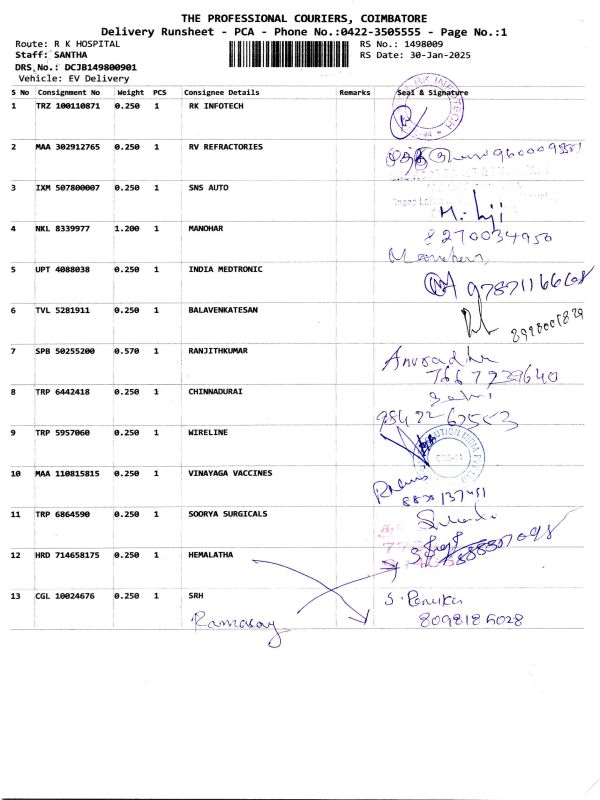 THE PROFESSIONAL COURIERS, COIMBATORE
Delivery Runsheet - PCA - Phone No.:0422-3505555 - Page No.:1
Route: R K HOSPITAL RS No.: 1498009
Staff: SANTHA RS Date: 30-Jan-2025
DRS No.: DCJB149800901
Vehicle: EV Delivery
S No Consignment No Weight PCS Consignee Details Remarks Seal & Signature
1 TRZ 100110871 0.250 1 RK INFOTECH
RK INFOTECH
2 MAA 302912765 0.250 1 RV REFRACTORIES
3 IXM 507800007 0.250 1 SNS AUTO
4 NKL 8339977 1.200 1 MANOHAR
8270034950
5 UPT 4088038 0.250 1 INDIA MEDTRONIC
9787116668
6 TVL 5281911 0.250 1 BALAVENKATESAN
7 SPB 50255200 0.570 1 RANJITHKUMAR Anuradha
7667239640
8 TRP 6442418 0.250 1 CHINNADURAI
9 TRP 5957060 0.250 1 WIRELINE
10 MAA 110815815 0.250 1 VINAYAGA VACCINES
11 TRP 6864590 0.250 1 SOORYA SURGICALS
12 HRD 714658175 0.250 1 HEMALATHA
13 CGL 10024676 0.250 1 SRH
Ramasay 8098185028